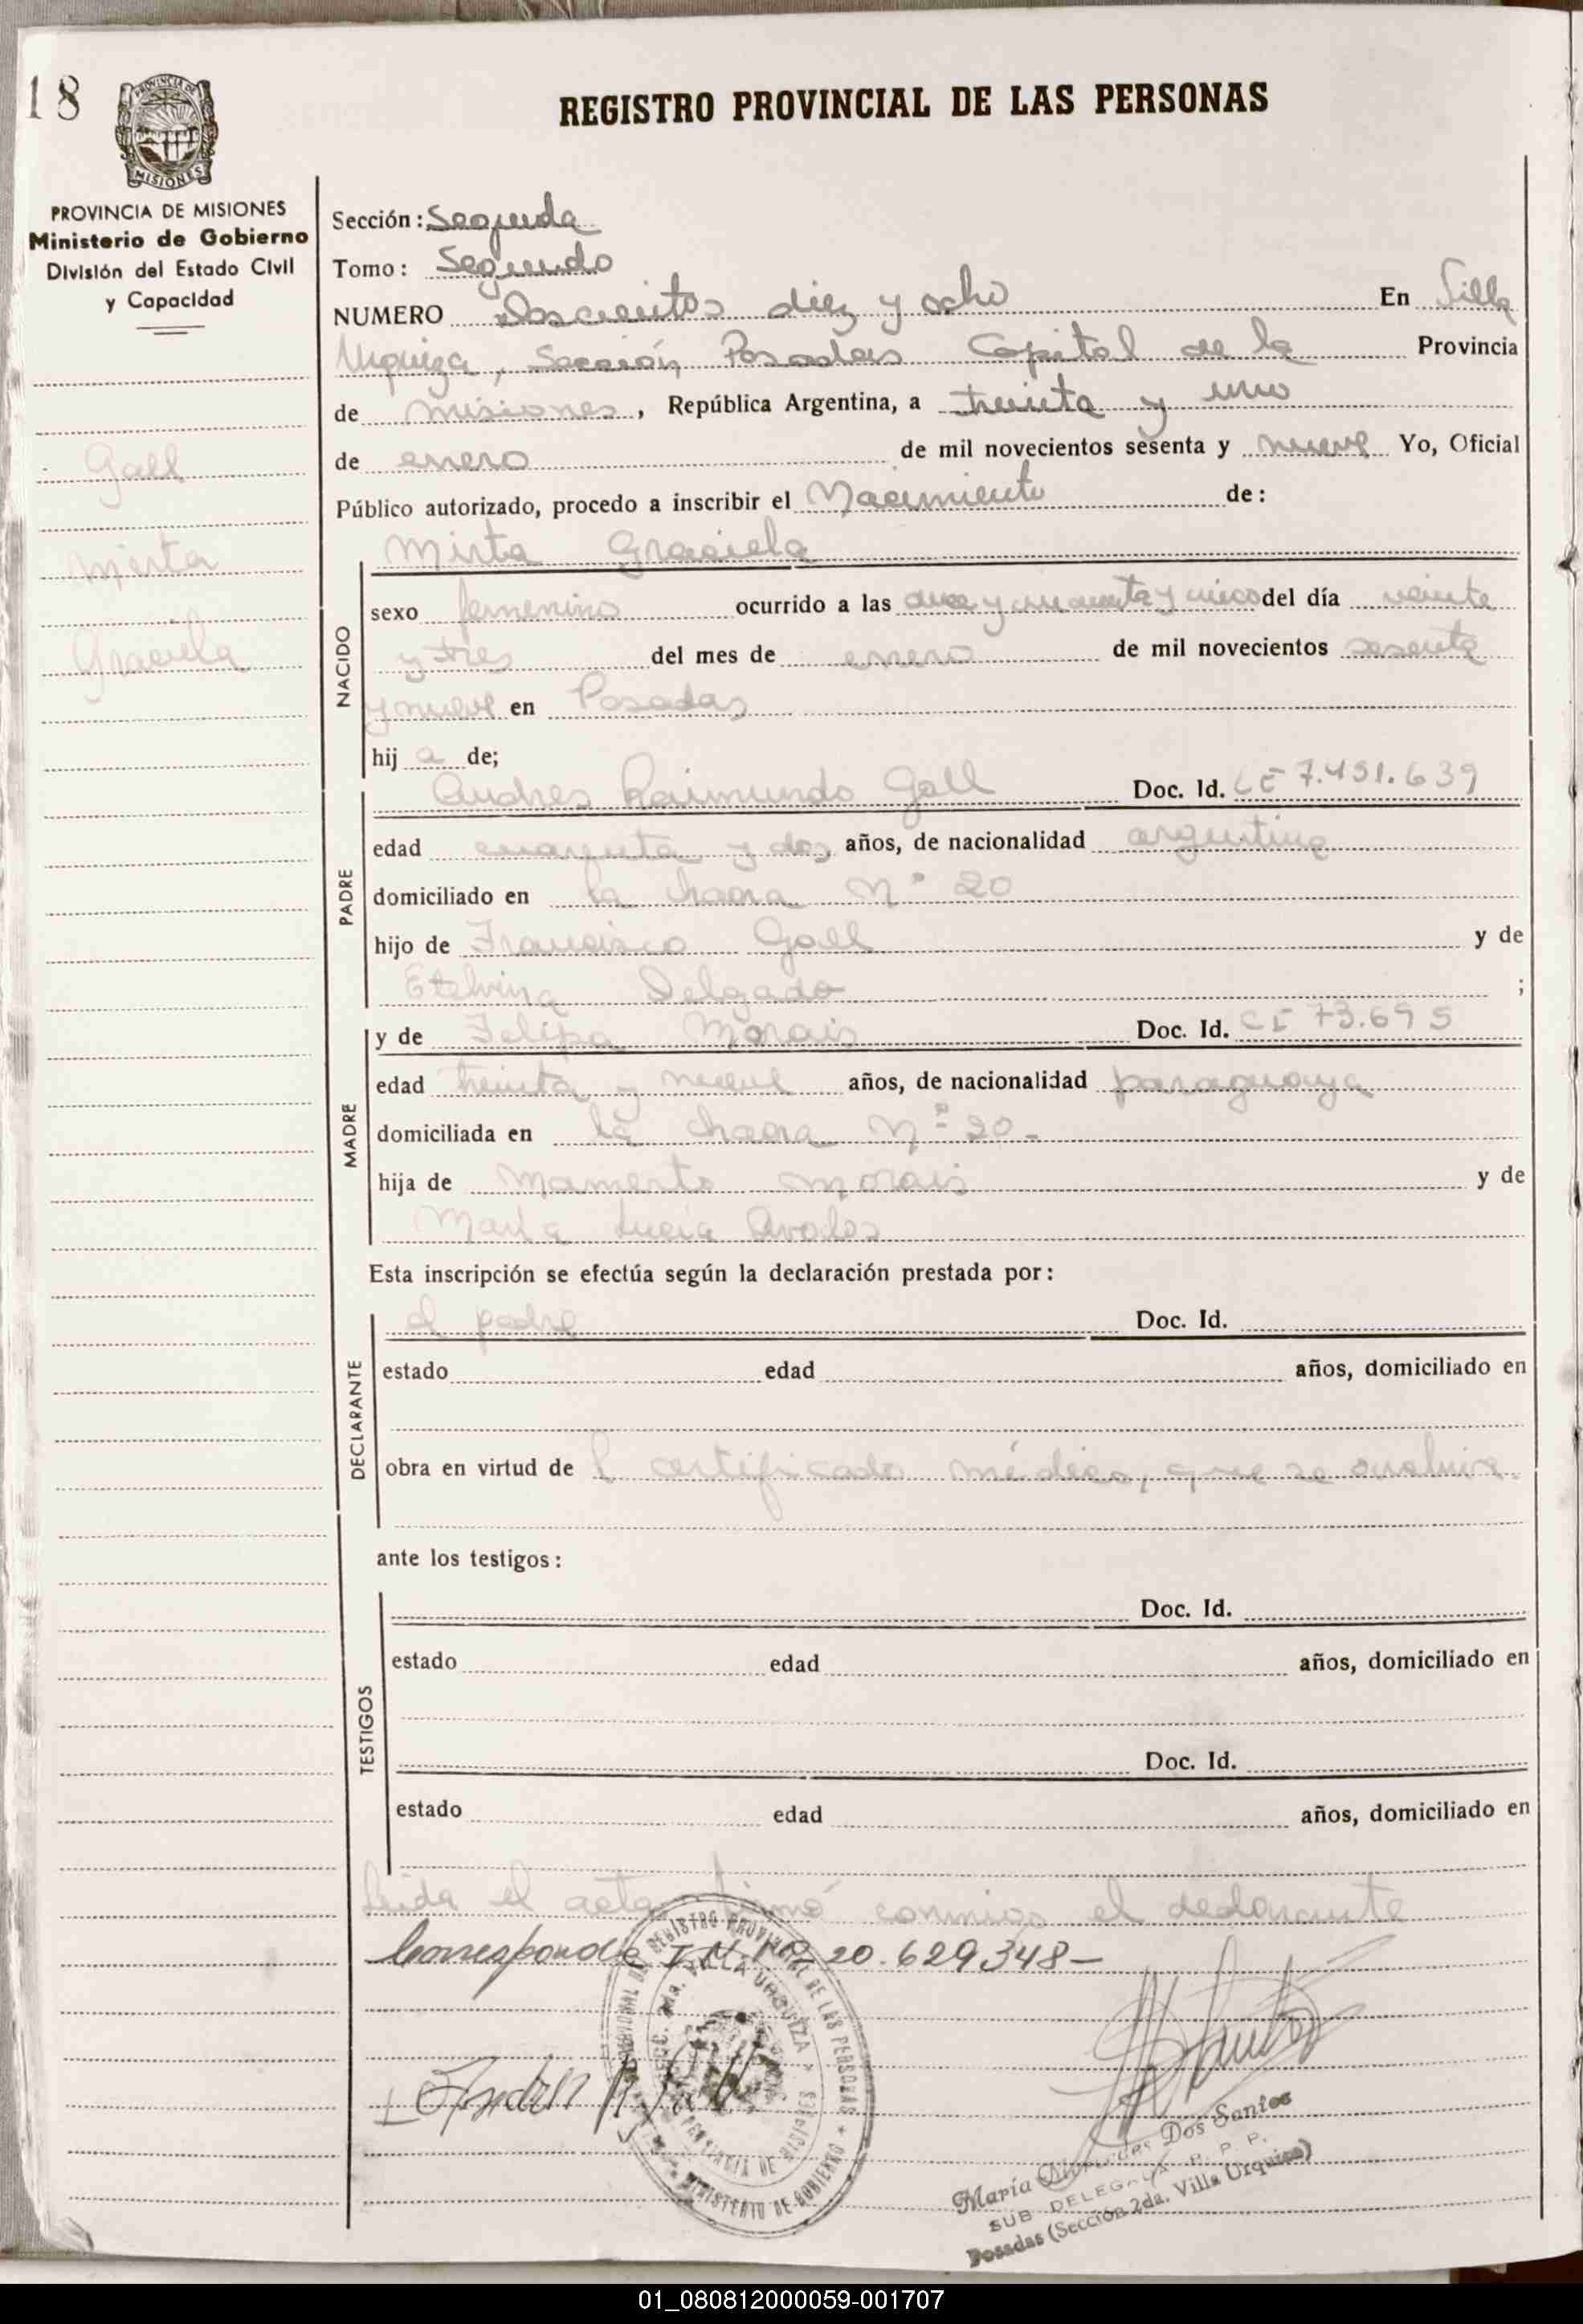 18
PROVINCIA DE
MISIONES
REGISTRO PROVINCIAL DE LAS PERSONAS
PROVINCIA DE MISIONES
Ministerio de Gobierno
División del Estado Civil
y Capacidad
Gall
Mirta
Graciela
Sección: Segunda
Tomo: Segundo
NUMERO Doscientos diez y ocho En Villa
Urquiza, Sección Posadas Capital de la Provincia
de misiones, República Argentina, a treinta y uno
de enero de mil novecientos sesenta y nueve Yo, Oficial
Público autorizado, procedo a inscribir el Nacimiento de:
NACIDO
Mirta Graciela
sexo femenino ocurrido a las y cuarenta y cinco del día veinte
y tres del mes de enero de mil novecientos sesenta
y nueve en Posadas
hij a de;
PADRE
Andres Raimundo Gall Doc. Id. LE 7.491.639
edad cuarenta y dos años, de nacionalidad argentina
domiciliado en la chacra Nº 20
hijo de Francisco Gall y de
Etelvina Delgado ;
MADRE
y de Felipa Morais Doc. Id. CI 73.695
edad treinta y nueve años, de nacionalidad paraguaya
domiciliada en la chacra Nº 20-
hija de Mamerto Morais y de
María Lucía Avalos
Esta inscripción se efectúa según la declaración prestada por:
DECLARANTE
el padre Doc. Id.
estado edad años, domiciliado en
obra en virtud de l certificado médico, que se archiva.
ante los testigos:
TESTIGOS
Doc. Id.
estado edad años, domiciliado en
Doc. Id.
estado edad años, domiciliado en
Leida el acta firmó conmigo el declarante
Corresponde I.M. Nº 20.629.348-
REGISTRO PROVINCIAL DE LAS PERSONAS
MINISTERIO DE GOBIERNO
SECC. 2da. VILLA URQUIZA
PROVINCIA DE MISIONES
Andres R Gall
María Dos Santos
SUB DELEGADA R. P. P.
Posadas (Sección 2da. Villa Urquiza)
01_080812000059-001707